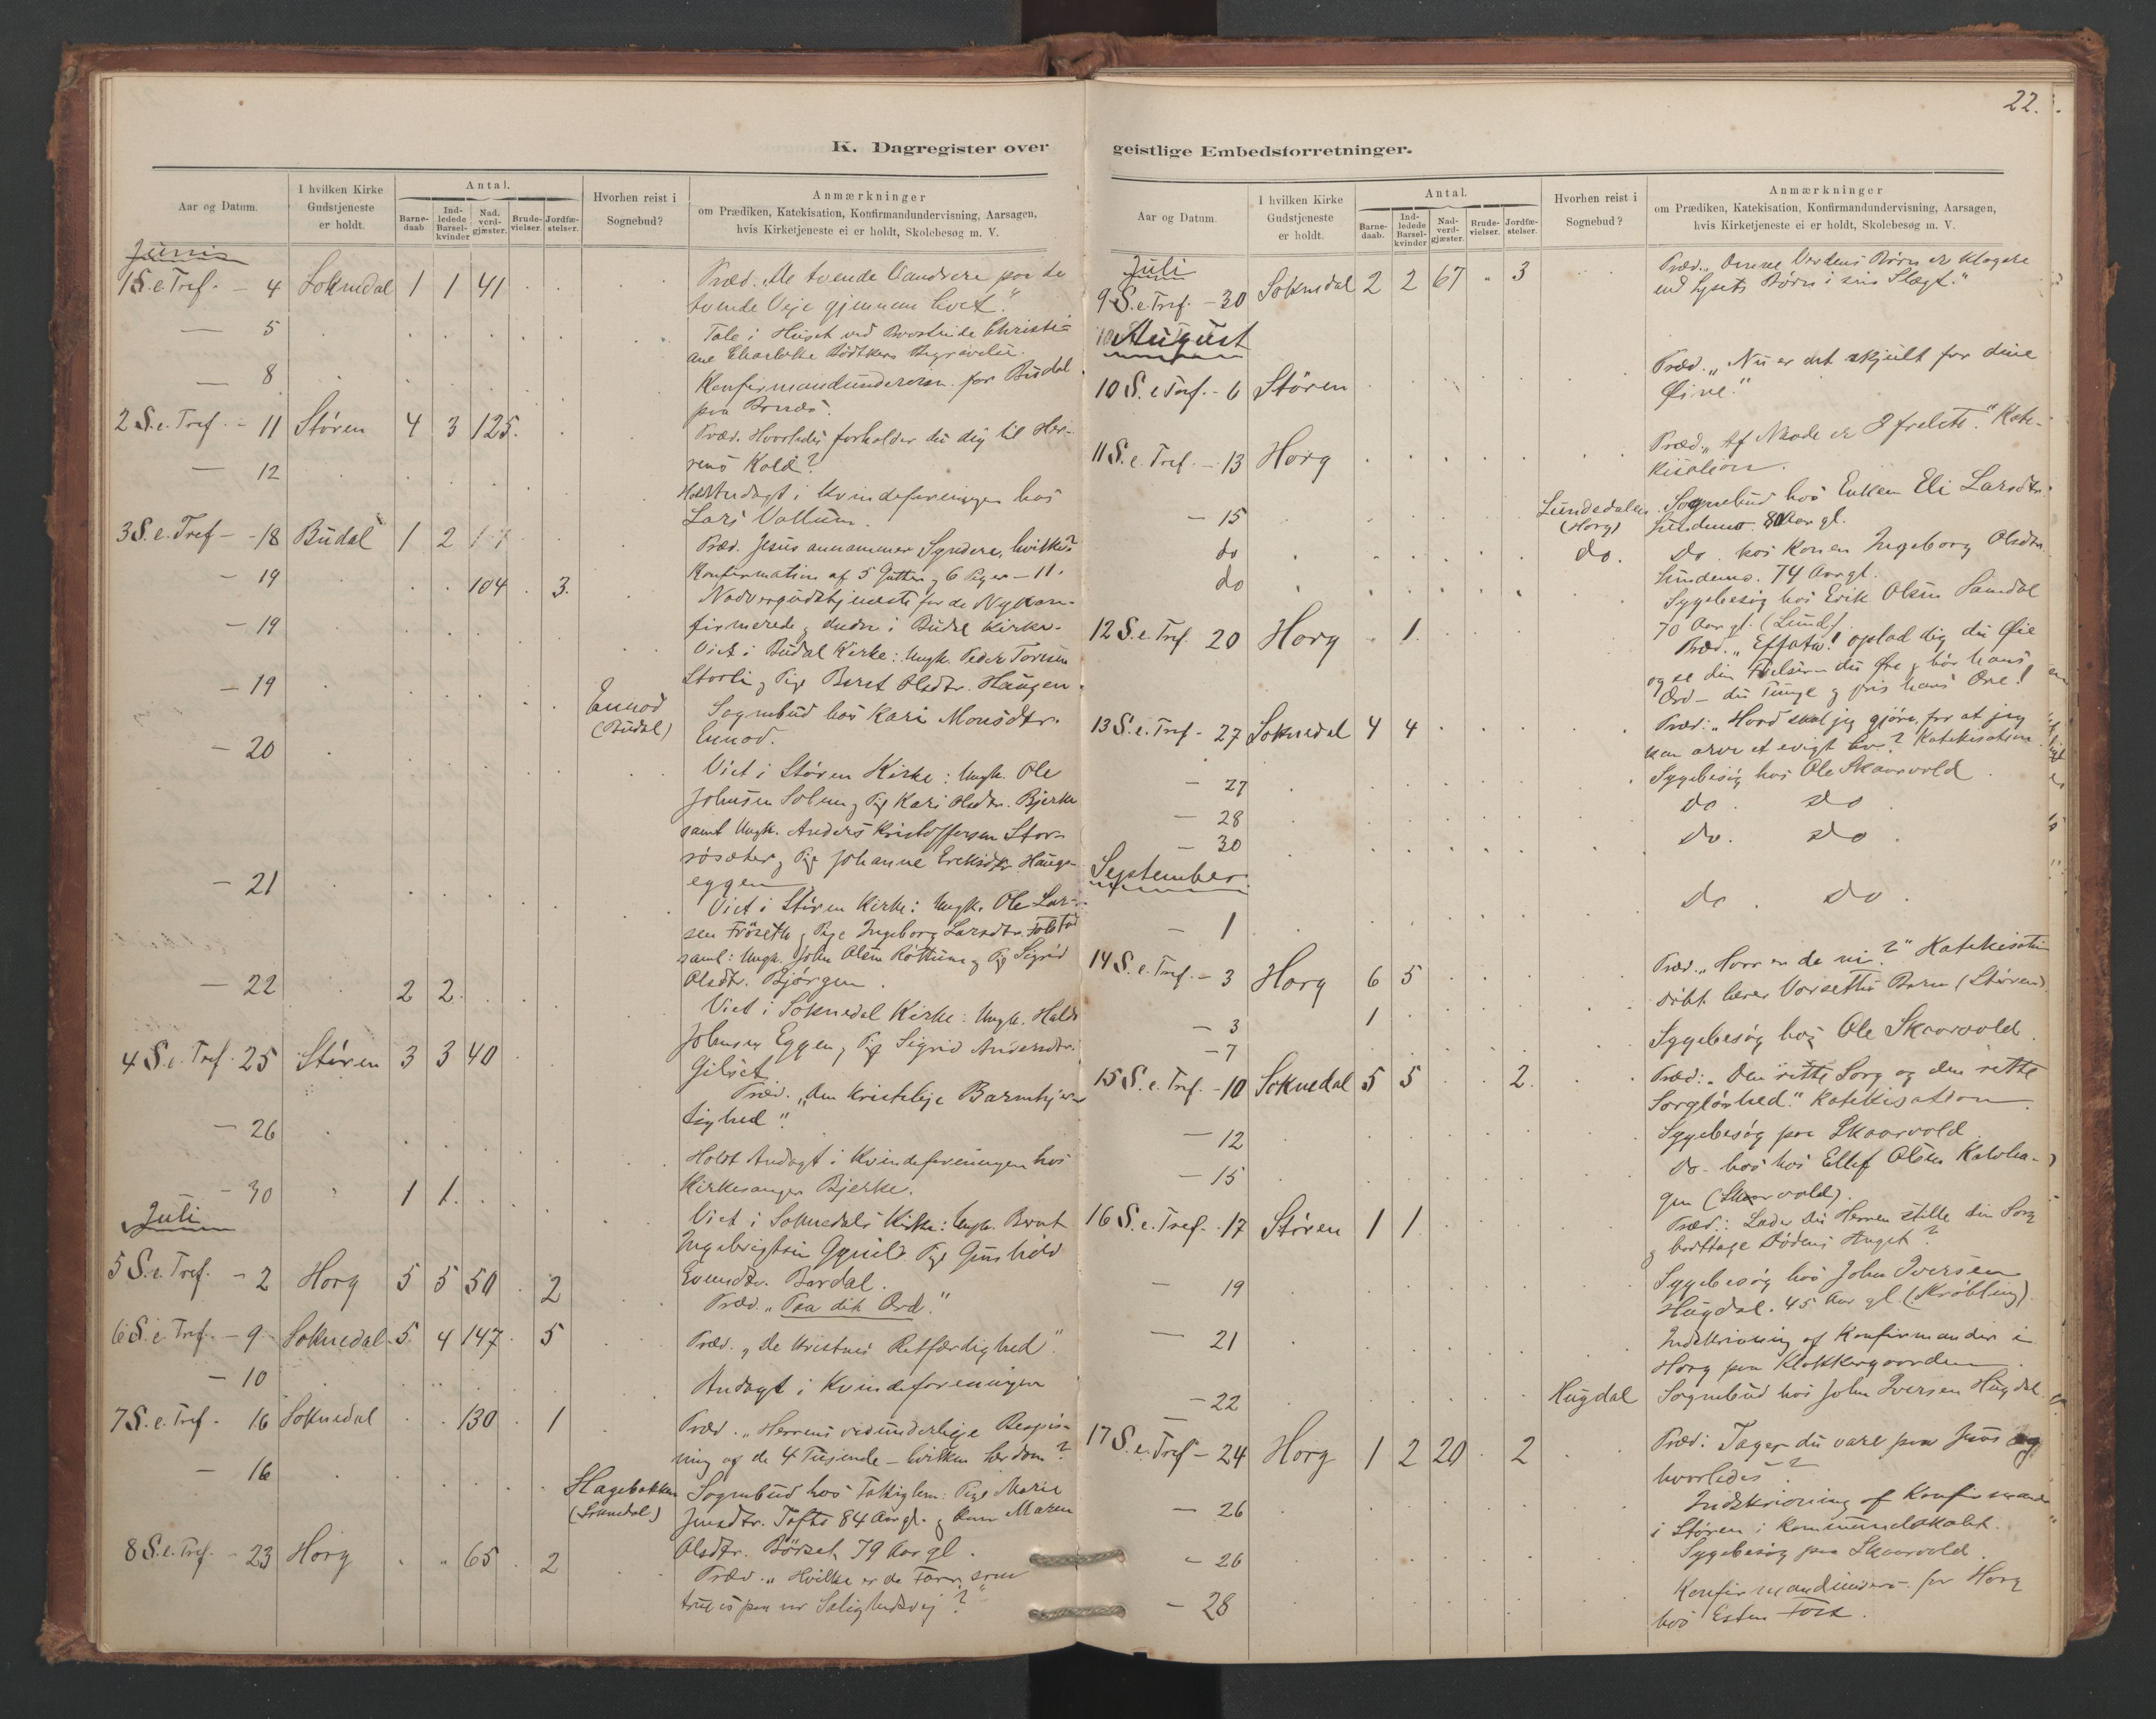 22.
K. Dagregister over
Aar og Datum.
I hvilken Kirke
Gudstjeneste
er holdt.
Antal.
Barne-
daab
Ind-
ledede
Barsel-
kvinder
Nad-
verd-
gjæster.
Brude-
vielser.
Jordfæ-
stelser.
Hvorhen reist i
Sognebud?
Anmærkninger
om Prædiken, Katekisation, Konfirmandundervisning, Aarsagen,
hvis Kirketjeneste ei er holdt, Skolebesøg m. V.
Juni
1 S. e. Tref. - 4 Soknedal 1 1 41
Præd. „De tvende Vandrere paa de
tvende Veje gjennem livet."
— 5
Tale i Huset ved Christi-
ane Charlotte Bødtkers Begravelse.
— 8
Konfirmandunderv. for Budal
paa
2 S. e. Tref. - 11 Støren 4 3 125.
Præd. Hvorledes forholder du dig til Her-
rens Kald?
— 12
Holdt Andagt i Kvindeforeningen hos
Lars Vollum.
3 S. e. Tref - 18 Budal 1 2
Præd. Jesus annammer Syndere, hvilke?
Konfirmation af 5 Gutter og 6 Piger - 11.
- 19 104 3.
Nadvergudstjeneste for de Nykon-
firmerede og Andre i Budal Kirke.
- 19
Viet i Budal Kirke: Ungk. Peder
Storli og Pige Beret Olsdtr. Haugen.
- 19 Ennod
(Budal)
Sognebud hos Kari Monsdtr.
Ennod.
- 20
Viet i Støren Kirke: Ungk. Ole
Johnsen Solem og Pige Kari Olsdtr. Bjerke
samt Ungk. Anders Kristoffersen Stor-
røsæter og Pige Johanne Ereksdtr. Hauge-
eggen
- 21
Viet i Støren Kirke: Ungk. Ole Lar-
sen Frøseth og Pige Ingeborg Larsdtr. Folstad
samt: Ungk. John Olsen Røttum og Pige Sigrid
Olsdtr. Bjørgen.
- 22 2 2.
Viet i Soknedal Kirke: Ungk. Haldo
Johnsen Eggen og Pige Sigrid Andersdtr.
Gilset
4 S. e. Tref. 25 Støren 3 3 40
Præd. „Den kristelige Barmhjer-
tighed".
- 26
Holdt Andagt i Kvindeforeningen hos
Kirkesanger Bjerke.
- 30 1 1.
Viet i Soknedals Kirke: Ungk. Bernt
Ingebrigtsen Pige Gunhild
Evensdtr. Bardal.
Juli
5 S. e. Tref. - 2 Horg 5 5 50 2
Præd. „Paa dit Ord."
6 S. e. Tref. - 9 Soknedal 5 4 147 5
Præd. „De Kristnes Retfærdighed".
- 10
Andagt i Kvindeforeningen
7 S. e. Tref. 16 Soknedal 130 1
Præd. „Herrens vidunderlige Bespis-
ning af de 4 Tusinde - hvilken Lærdom?
- 16 Hagebakken
(Soknedal)
Sognebud hos Fattiglem: Pige Marie
Jensdtr. Tofte 84 Aar gl. og Maren
Olsdtr. Børset 79 Aar gl.
8 S. e. Tref. - 23 Horg 65 2
Præd. „Hvilke er de Farer, som
true os paa vor Salighedsvej?"
geistlige Embedsforretninger.
Aar og Datum.
I hvilken Kirke
Gudstjeneste
er holdt.
Antal.
Barne-
daab.
Ind-
ledede
Barsel-
kvinder
Nad-
verd-
gjæster.
Brude-
vielser.
Jordfæ-
stelser.
Hvorhen reist i
Sognebud?
Anmærkninger
om Prædiken, Katekisation, Konfirmandundervisning, Aarsagen,
hvis Kirketjeneste ei er holdt, Skolebesøg m. V.
Juli
9 S. e. Tref. - 30 Soknedal 2 2 67 " 3
Præd. „Denne Verdens Børn er klogere
end Lysets Børn i sin Slægt."
August
10 S. e. Tref. - 6 Støren
Præd. „Nu er det skjult for dine
Øine."
11 S. e. Tref. - 13 Horg
Præd. „Af Naade er I frelste." Kate-
kisation.
- 15 Lundedalen
(Horg)
Sognebud hos Enken Eli Larsdtr.
Lundemo. 80 Aar gl.
do do.
Do. hos Konen Ingeborg Olsdtr.
Lundemo. 74 Aar gl.
do
Sygebesøg hos Erik Olsen Samdal
70 Aar gl. (Lund).
12 S. e. Tref. 20 Horg 1.
Præd. „Effata! oplad dig du Øie
og se din Frelser du Øre og hør hans
Ord - du Tunge og pris hans Ære!
13 S. e. Tref. - 27 Soknedal 4 4
Præd: „Hvad skal jeg gjøre, for at jeg
kan arve et evigt liv? Katekisation
- 27
Sygebesøg hos Ole Skaarvold.
- 28
do. do.
- 30
do. do.
September.
- 1
do do.
14 S. e. Tref. - 3 Horg 6 5
Præd. „Hvor er de ni?" Katekisation
- 3 1
Døbt Vorsettrø Barn (Støren).
- 7
Sygebesøg hos Ole Skaarvold.
15 S. e. Tref. - 10 Soknedal 5 5 2.
Præd: „Den rette Sorg og den rette
Sorgløshed." Katekisation.
- 12
Sygebesøg paa Skaarvold.
- 15
Do. hos hos Ellef Olsen
(Skaarvold).
16 S. e. Tref. - 17 Støren 1 1
Præd.: Lader Du Herren stille din Sorg
og borttage Dødens Angst?
- 19
Sygebesøg hos John Iversen
Hugdal. 45 Aar gl. (Krøbling).
- 21
Indskrivning af Konfirmander i
Horg paa Klokkergaarden.
- 22 Hugdal
Sognebud hos John Iversen Hugdal
17 S. e. Tref. - 24 Horg 1 2 20 2
Præd: Tager du vare paa Jesus og
hvorledes?
- 26
Indskrivning af Konfirmander
i Støren i Kommunelokalet.
- 26
Sygebesøg paa Skaarvold.
- 28
Konfirmandunderv. for Horg
hos Esten Foss.